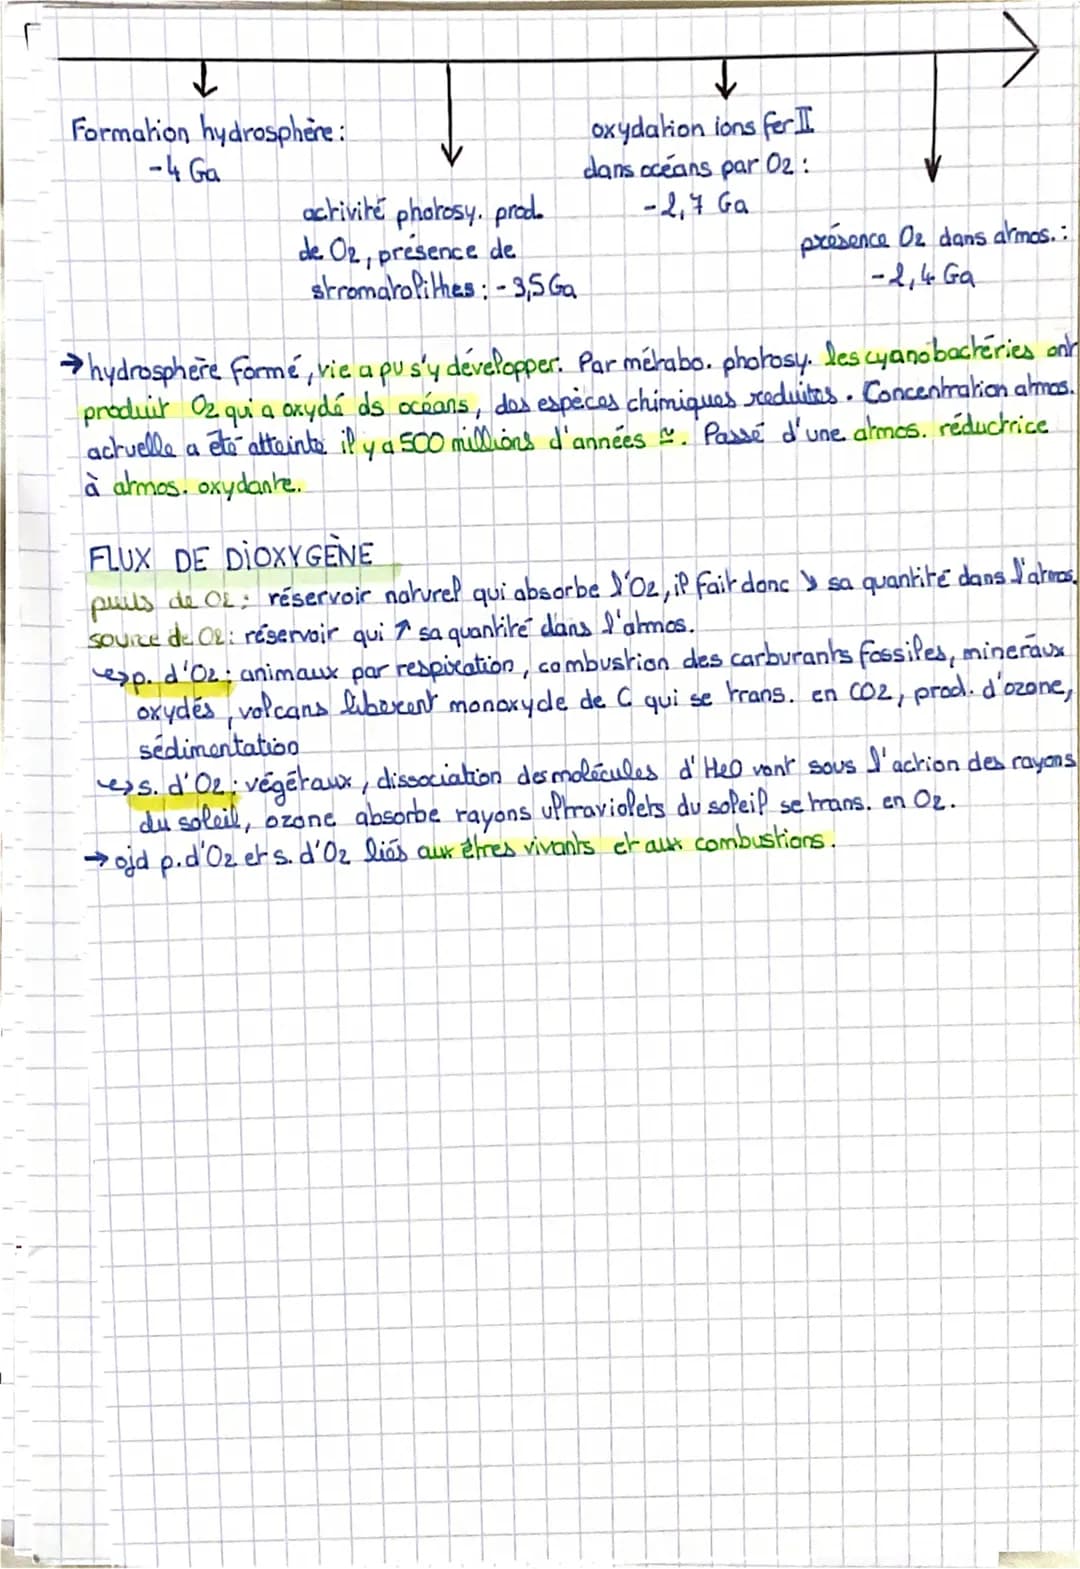 Formation hydrosphère :
-4 Ga
activité photosy. prod.
de O2, présence de
stromatolithes : -3,5 Ga
oxydation ions fer II
dans océans par O2 :
-2,7 Ga
présence O2 dans atmos. :
-2,4 Ga
→ hydrosphère formé, vie a pu s'y développer. Par métabo. photosy. les cyanobactéries ont
produit O2 qui a oxydé ds océans, des espèces chimiques reduites. Concentration atmos.
actuelle a été atteinte il y a 500 millions d'années ≃. Passé d'une atmos. réductrice
à atmos. oxydante.
FLUX DE DIOXYGÈNE
puits de O2 : réservoir naturel qui absorbe l'O2, il fait donc ↘ sa quantité dans l'atmos.
source de O2 : réservoir qui ↗ sa quantité dans l'atmos.
↪ p. d'O2 : animaux par respiration, combustion des carburants fossiles, minéraux
oxydés, volcans liberent monoxyde de C qui se trans. en CO2, prod. d'ozone,
sédimentatioo
↪ s. d'O2 : végétaux, dissociation des molécules d'H2O vont sous l'action des rayons
du soleil, ozone absorbe rayons ultraviolets du soleil se trans. en O2.
→ ojd p. d'O2 et s. d'O2 liés aux êtres vivants et aux combustions.